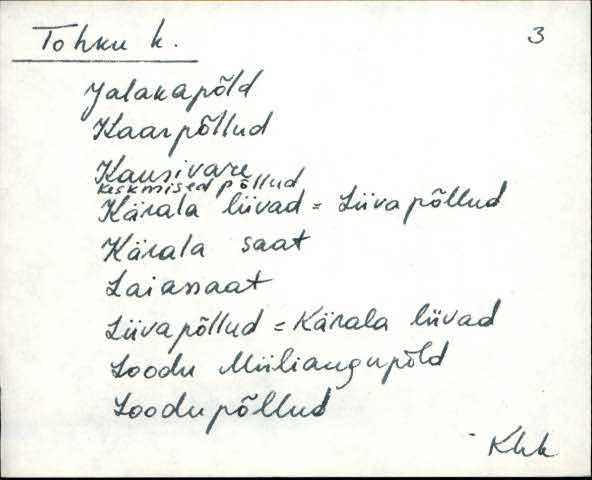 Tohku k. 3
Jalakapõld
Kaarpõllud
Kausivare
Keskmised põllud
Kärala liivad = Liivapõllud
Kärala saat
Laiassaat
Liivapõllud = Kärala liivad
Loodu Miiliaugupõld
Loodupõllud
Khk